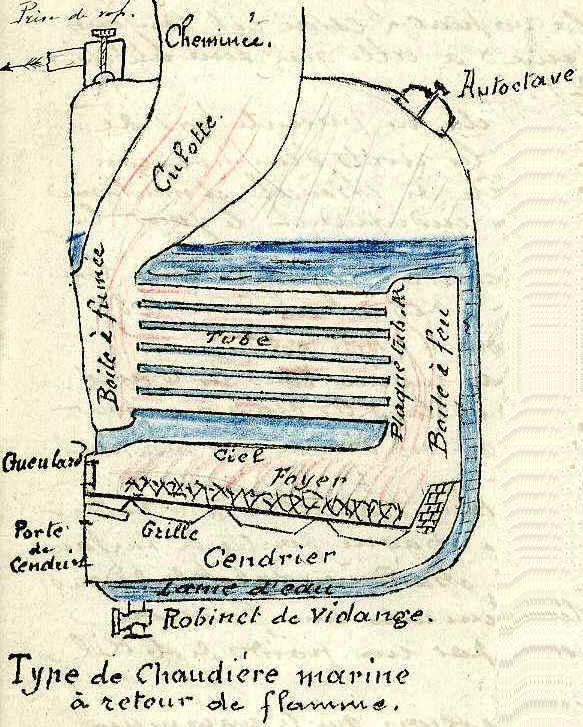 Prise de vap.
Cheminée.
Autoclave
Culotte.
Boite à fumée
Tube
Plaque tub.
Boite à feu
Ciel
Gueulard
Foyer
Grille
Porte
de
Cendrier
Cendrier
Lame d'eau
Robinet de Vidange.
Type de Chaudière marine
à retour de flamme.